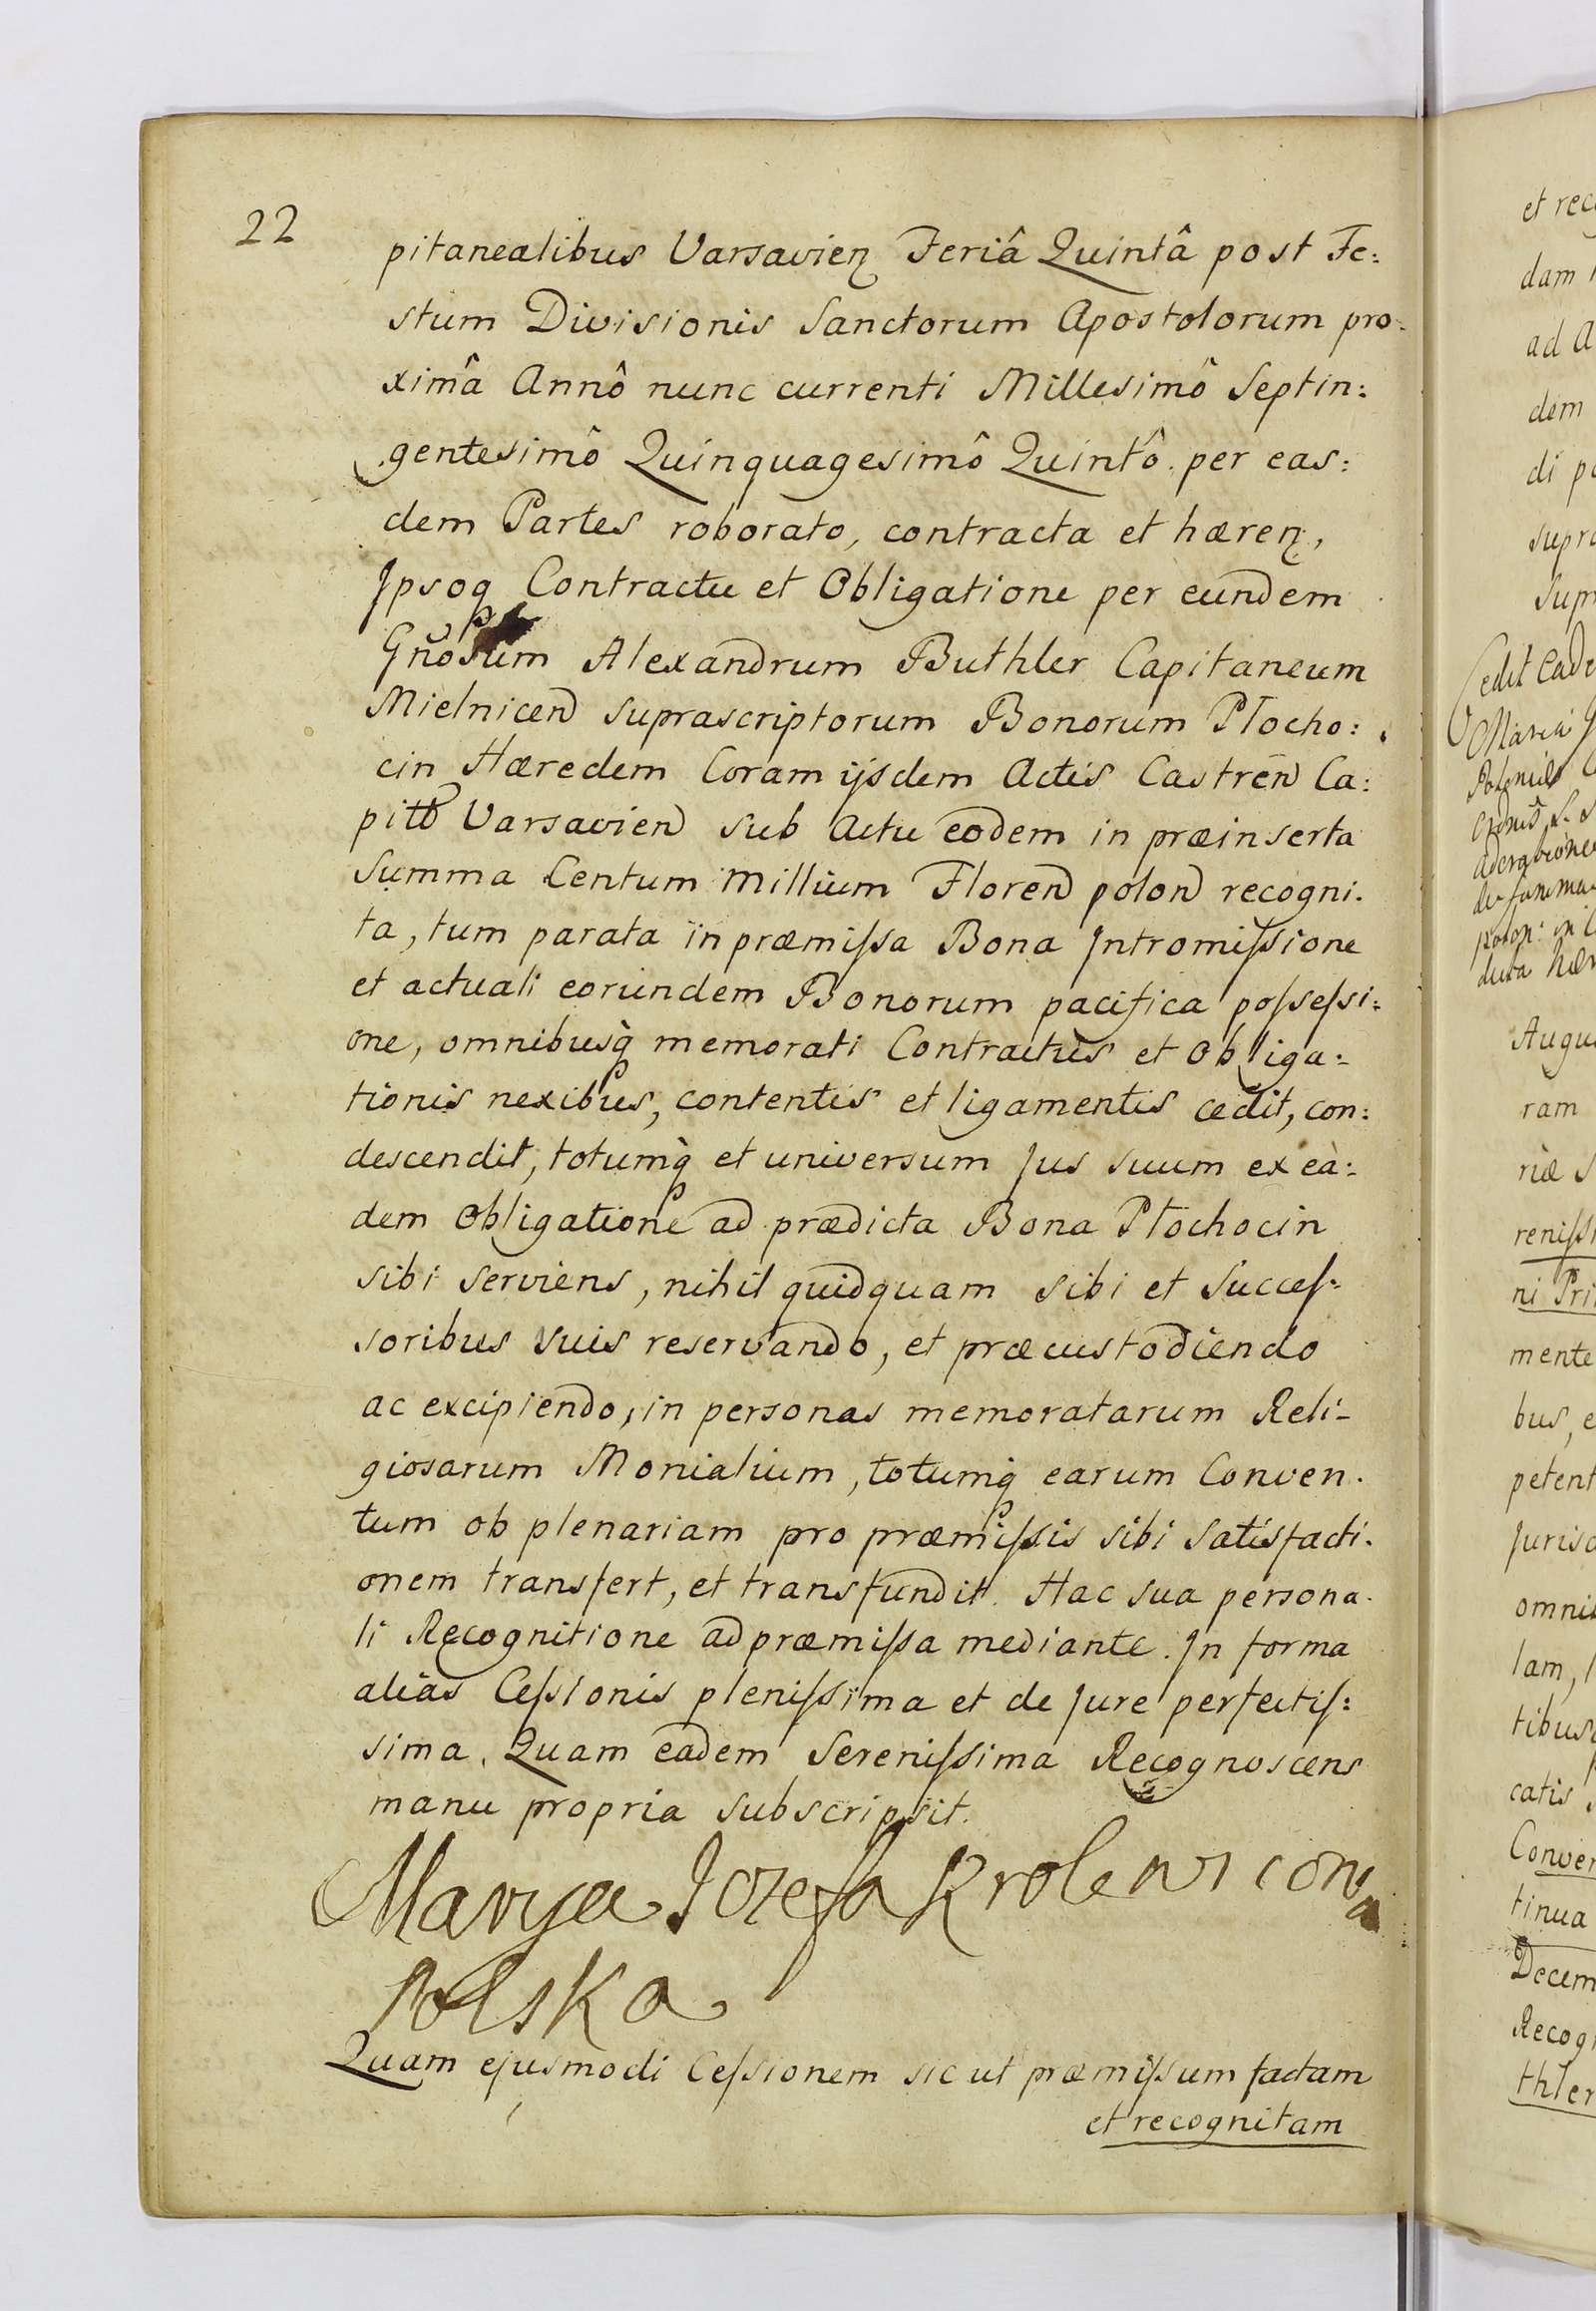 22
pitanealibus Varsavien Feriâ Quintâ post Fe:
stum Divisionis Sanctorum Apostolorum pro:
ximâ Annô nunc currenti Millesimô Septin:
gentesimô Quinquagesimô Quintô per eas:
dem Partes roborato, contracta et hæren,
Jpsoq Contractu et Obligatione per eundem
Gnosum Alexandrum Buthler Capitaneum
Mielnicen suprascriptorum Bonorum Płocho:
cin Hæredem Coram ijsdem Actis Castren Ca:
pitt Varsavien sub Actu eodem in præinserta
Summa Centum Millium Floren polon recogni.
ta, tum parata in præmiſsa Bona Jntromiſsione
et actuali eorundem Bonorum pacifica poſseſsi:
one, omnibusq̀ memorati Contractûs et Obliga:
tionis nexibus, contentis et ligamentis cedit, con:
descendit, totumq̀ et universum Jus suum ex eà:
dem Obligatione ad prædicta Bona Płochocin
sibi serviens, nihil quidquam sibi et Succeſ:
soribus suis reservando, et præcustodiendo
ac excipiendo, in personas memoratarum Reli-
giosarum Monialium, totumq̀ earum Conven.
tum ob plenariam pro præmiſsis sibi satisfacti.
onem transfert, et transfundit. Hac sua persona.
li Recognitione ad præmiſsa mediante. Jn forma
aliàs Ceſsionis pleniſsima et de Jure perfectiſ:
sima. Quam eadem Sereniſsima Recognoscens
manu propria subscripsit.
Marya Jozefa Krolewicona
Polska
Quam ejusmodi Ceſsionem sic ut præmiſsum factam
et recognitam
et rec
dam
ad A
dem
di
supr
Supr
Augu
ram
riæ S
reniſs
ni Pri
mente
bus, e
petent
Jurisd
omni
lam,
tibus
catis
Conven
tinua
Decem
Recog
thler